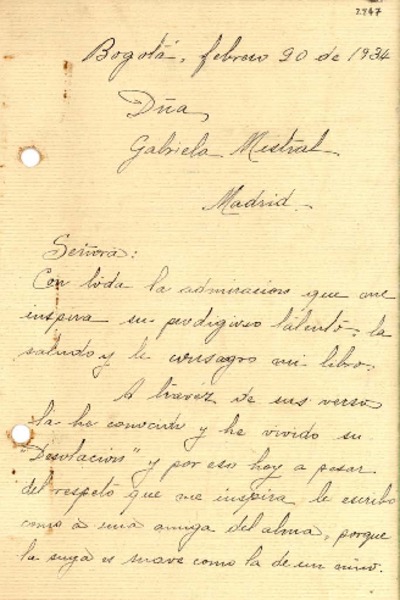 2247
Bogotá, febrero 20 de 1934
Dña,
Gabriela Mistral.
Madrid.
Señora:
Con toda la admiracion que me
inspira su prodigioso talento, la
saludo y le consagro mi libro.
A travéz de sus verso
la he conocido y he vivido su
"Desolacion" y por eso hoy a pesar
del respeto que me inspira le escribo
como á una amiga del alma, porque
la suya es suave como la de un niño.